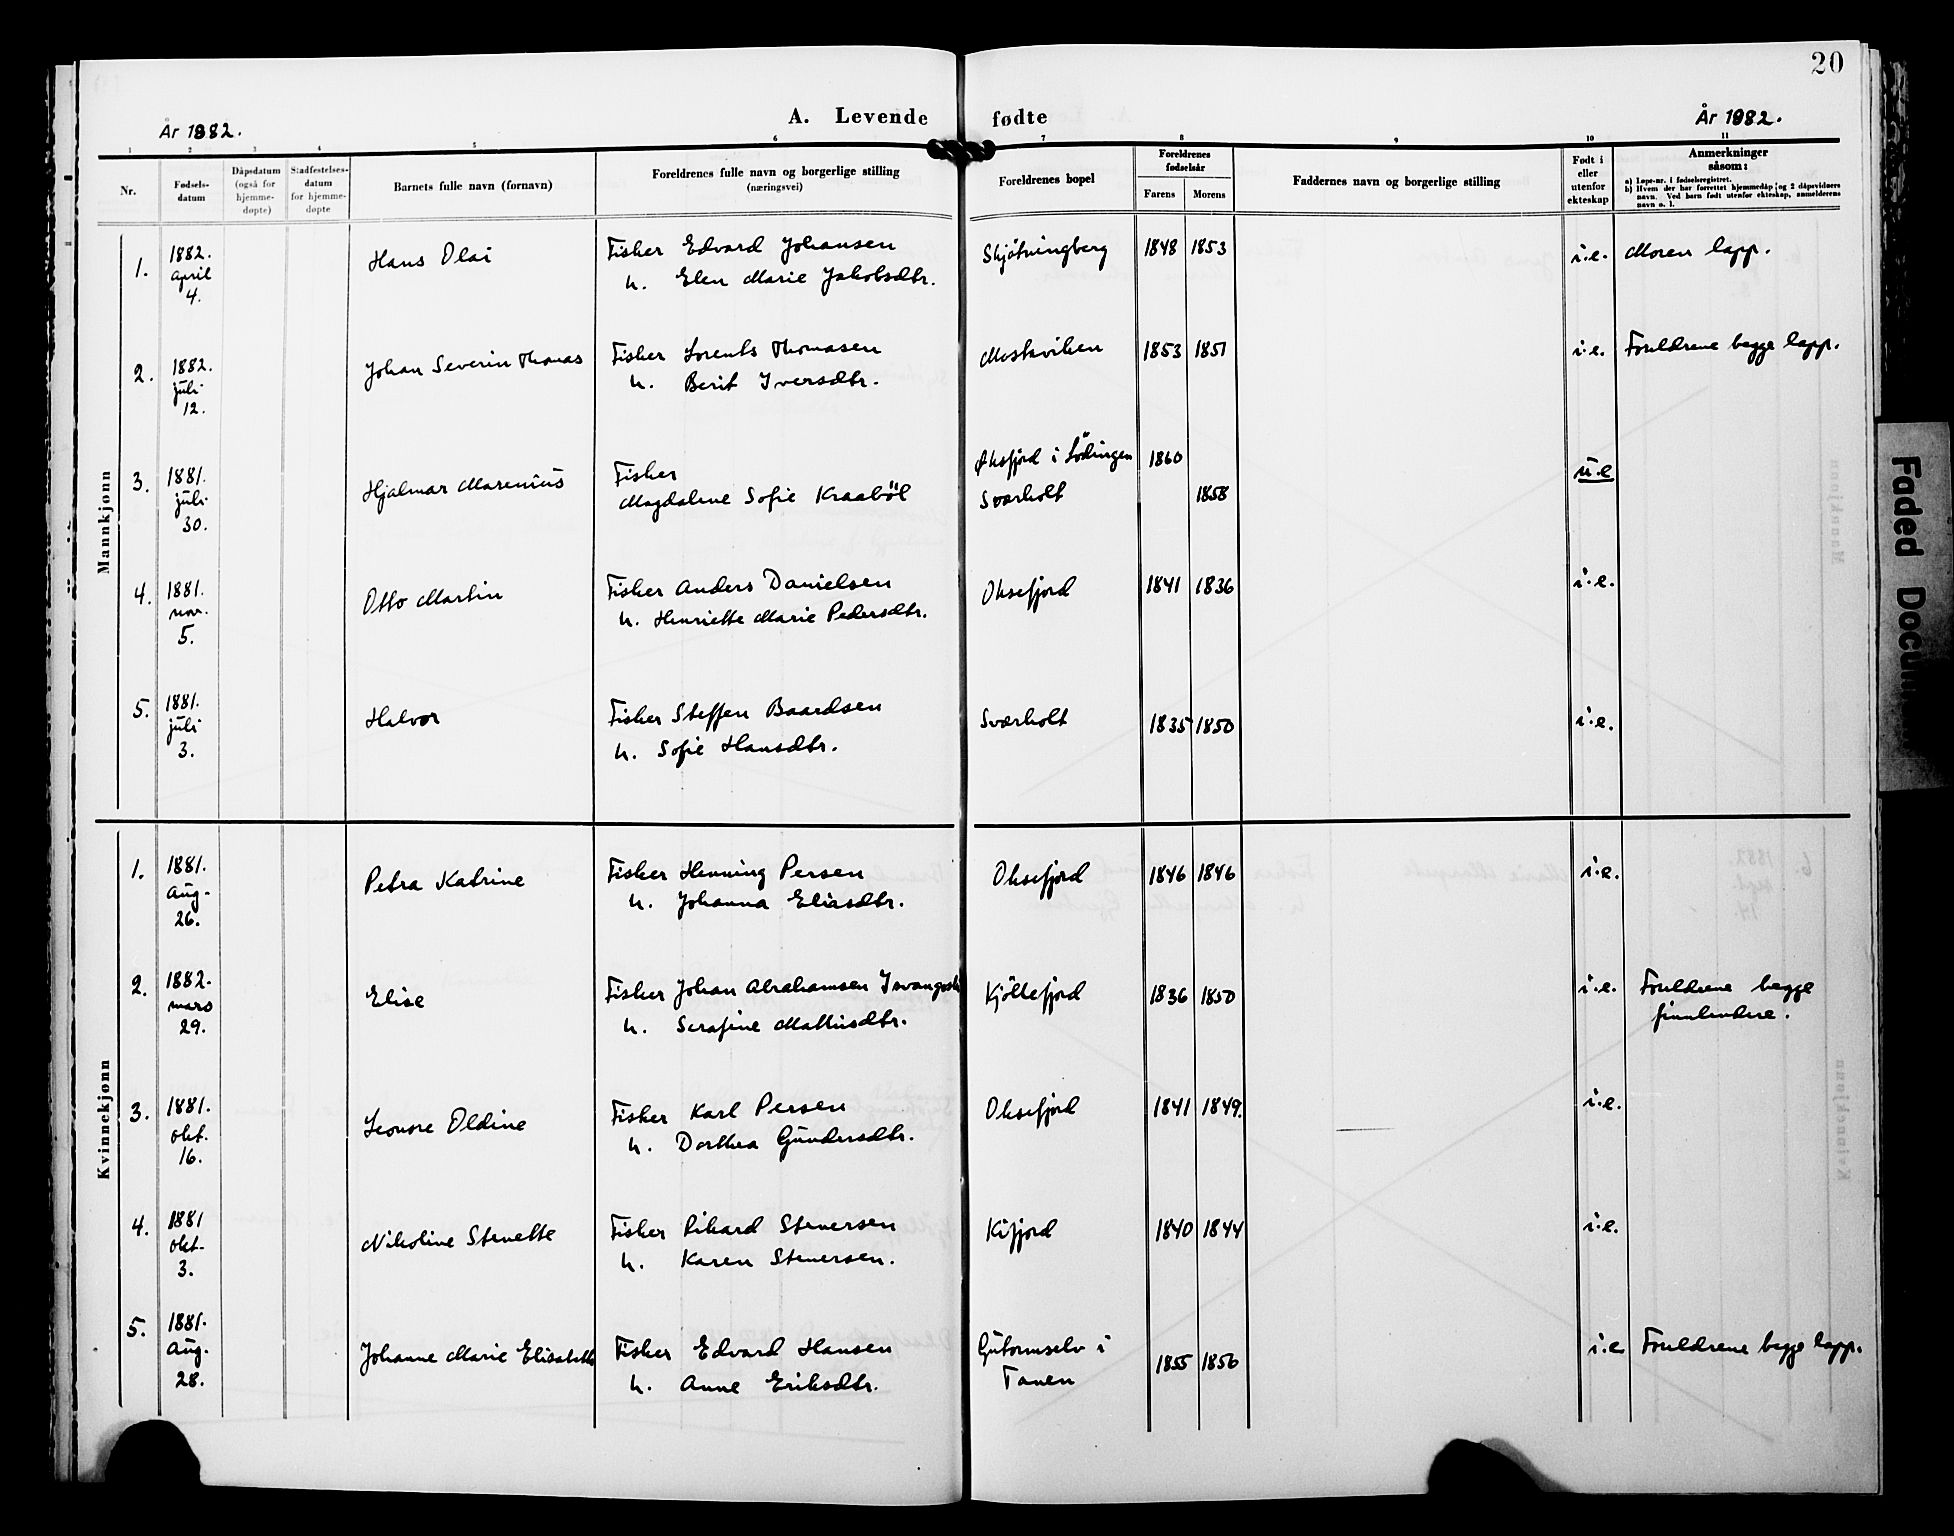 20
År 1882.
A. Levende fødte
År 1882.
1 2 3 4 5 6 7 8 9 10 11
Nr.
Fødsels-
datum
Dåpsdatum
(også for
hjemme-
døpte)
Stadfestelses-
datum
for hjemme-
døpte
Barnets fulle navn (fornavn)
Foreldrenes fulle navn og borgerlige stilling
(næringsvei)
Foreldrenes bopel
Foreldrenes
fødselsår
Farens Morens
Faddernes navn og borgerlige stilling
Født i
eller
utenfor
ekteskap
Anmerkninger
såsom:
a) Løpe-nr. i fødselsregistret.
b) Hvem der har forrettet hjemmedåp og 2 dåpsvidners
navn. Ved barn født utenfor ekteskap, anmelderens
navn o. l.
Mannkjønn
1. 1882. april 4. Hans Olai
Fisker Edvard Johansen
h. Elen Marie Jakobsdtr.
Skjøtningberg 1848 1853 i.e. Moren lapp.
2. 1882. juli 12. Johan Severin Thomas
Fisker Lorents Thomasen
h. Berit Iversdtr.
Moskviken 1853 1851 i.e. Foreldrene begge lapp.
3. 1881. juli 30. Hjalmar Marenius
Fisker
Magdalene Sofie Kraabøl
Øksfjord i Lødingen 1860
Sværholt 1858 u.e
4. 1881. nov. 5. Otto Martin
Fisker Anders Danielsen
h. Henriette Marie Pedersdtr.
Oksefjord 1841 1836 i.e.
5. 1881. juli 3. Halvor
Fisker Steffen Baardsen
h. Sofie Hansdtr.
Sværholt 1835 1850 i.e.
Kvinnekjønn
1. 1881. Aug. 26. Petra Katrine
Fisker Henning Persen
h. Johanna Eliasdtr.
Oksefjord 1846 1846 i.e.
2. 1882. mars 29. Elise
Fisker Johan Abrahamsen
h. Serafine Mathisdtr.
Kjøllefjord 1836 1850 i.e. Foreldrene begge
finnlendere.
3. 1881. okt. 16. Leonore Oldine
Fisker Karl Persen
h. Dorthea Gundersdtr.
Oksefjord 1841 1849. i.e.
4. 1881 okt. 3. Nikoline Stenette
Fisker Rikard Stenersen
h. Karen Stenersen.
Kifjord 1840 1844 i.e.
5. 1881. Aug. 28. Johanne Marie Elisabeth
Fisker Edvard Hansen
h. Anne Eriksdtr.
Gutormselv i
Tanen 1855 1856 i.e Foreldrene begge lapp.
Faded Docum